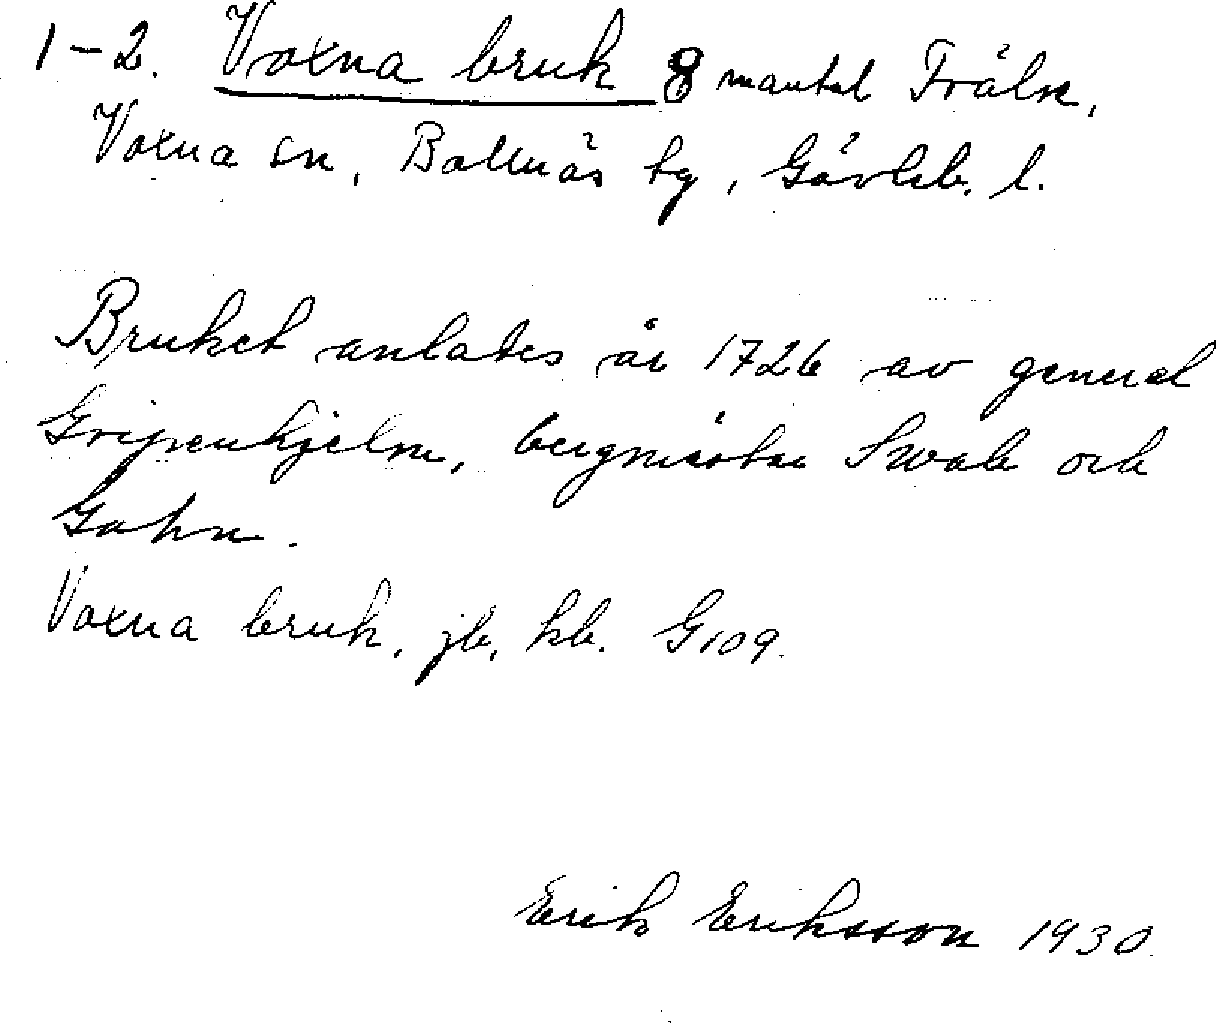 1-2. Voxna bruk 8 mantal Frälse,
Voxna sn, Bollnäs tg, Gävleb. l.
Bruket anlades år 1726 av general
Gripenhjelm, bergmästare Swab och
Gahn.
Voxna bruk, jb, kb. G109.
Erik Eriksson 1930.